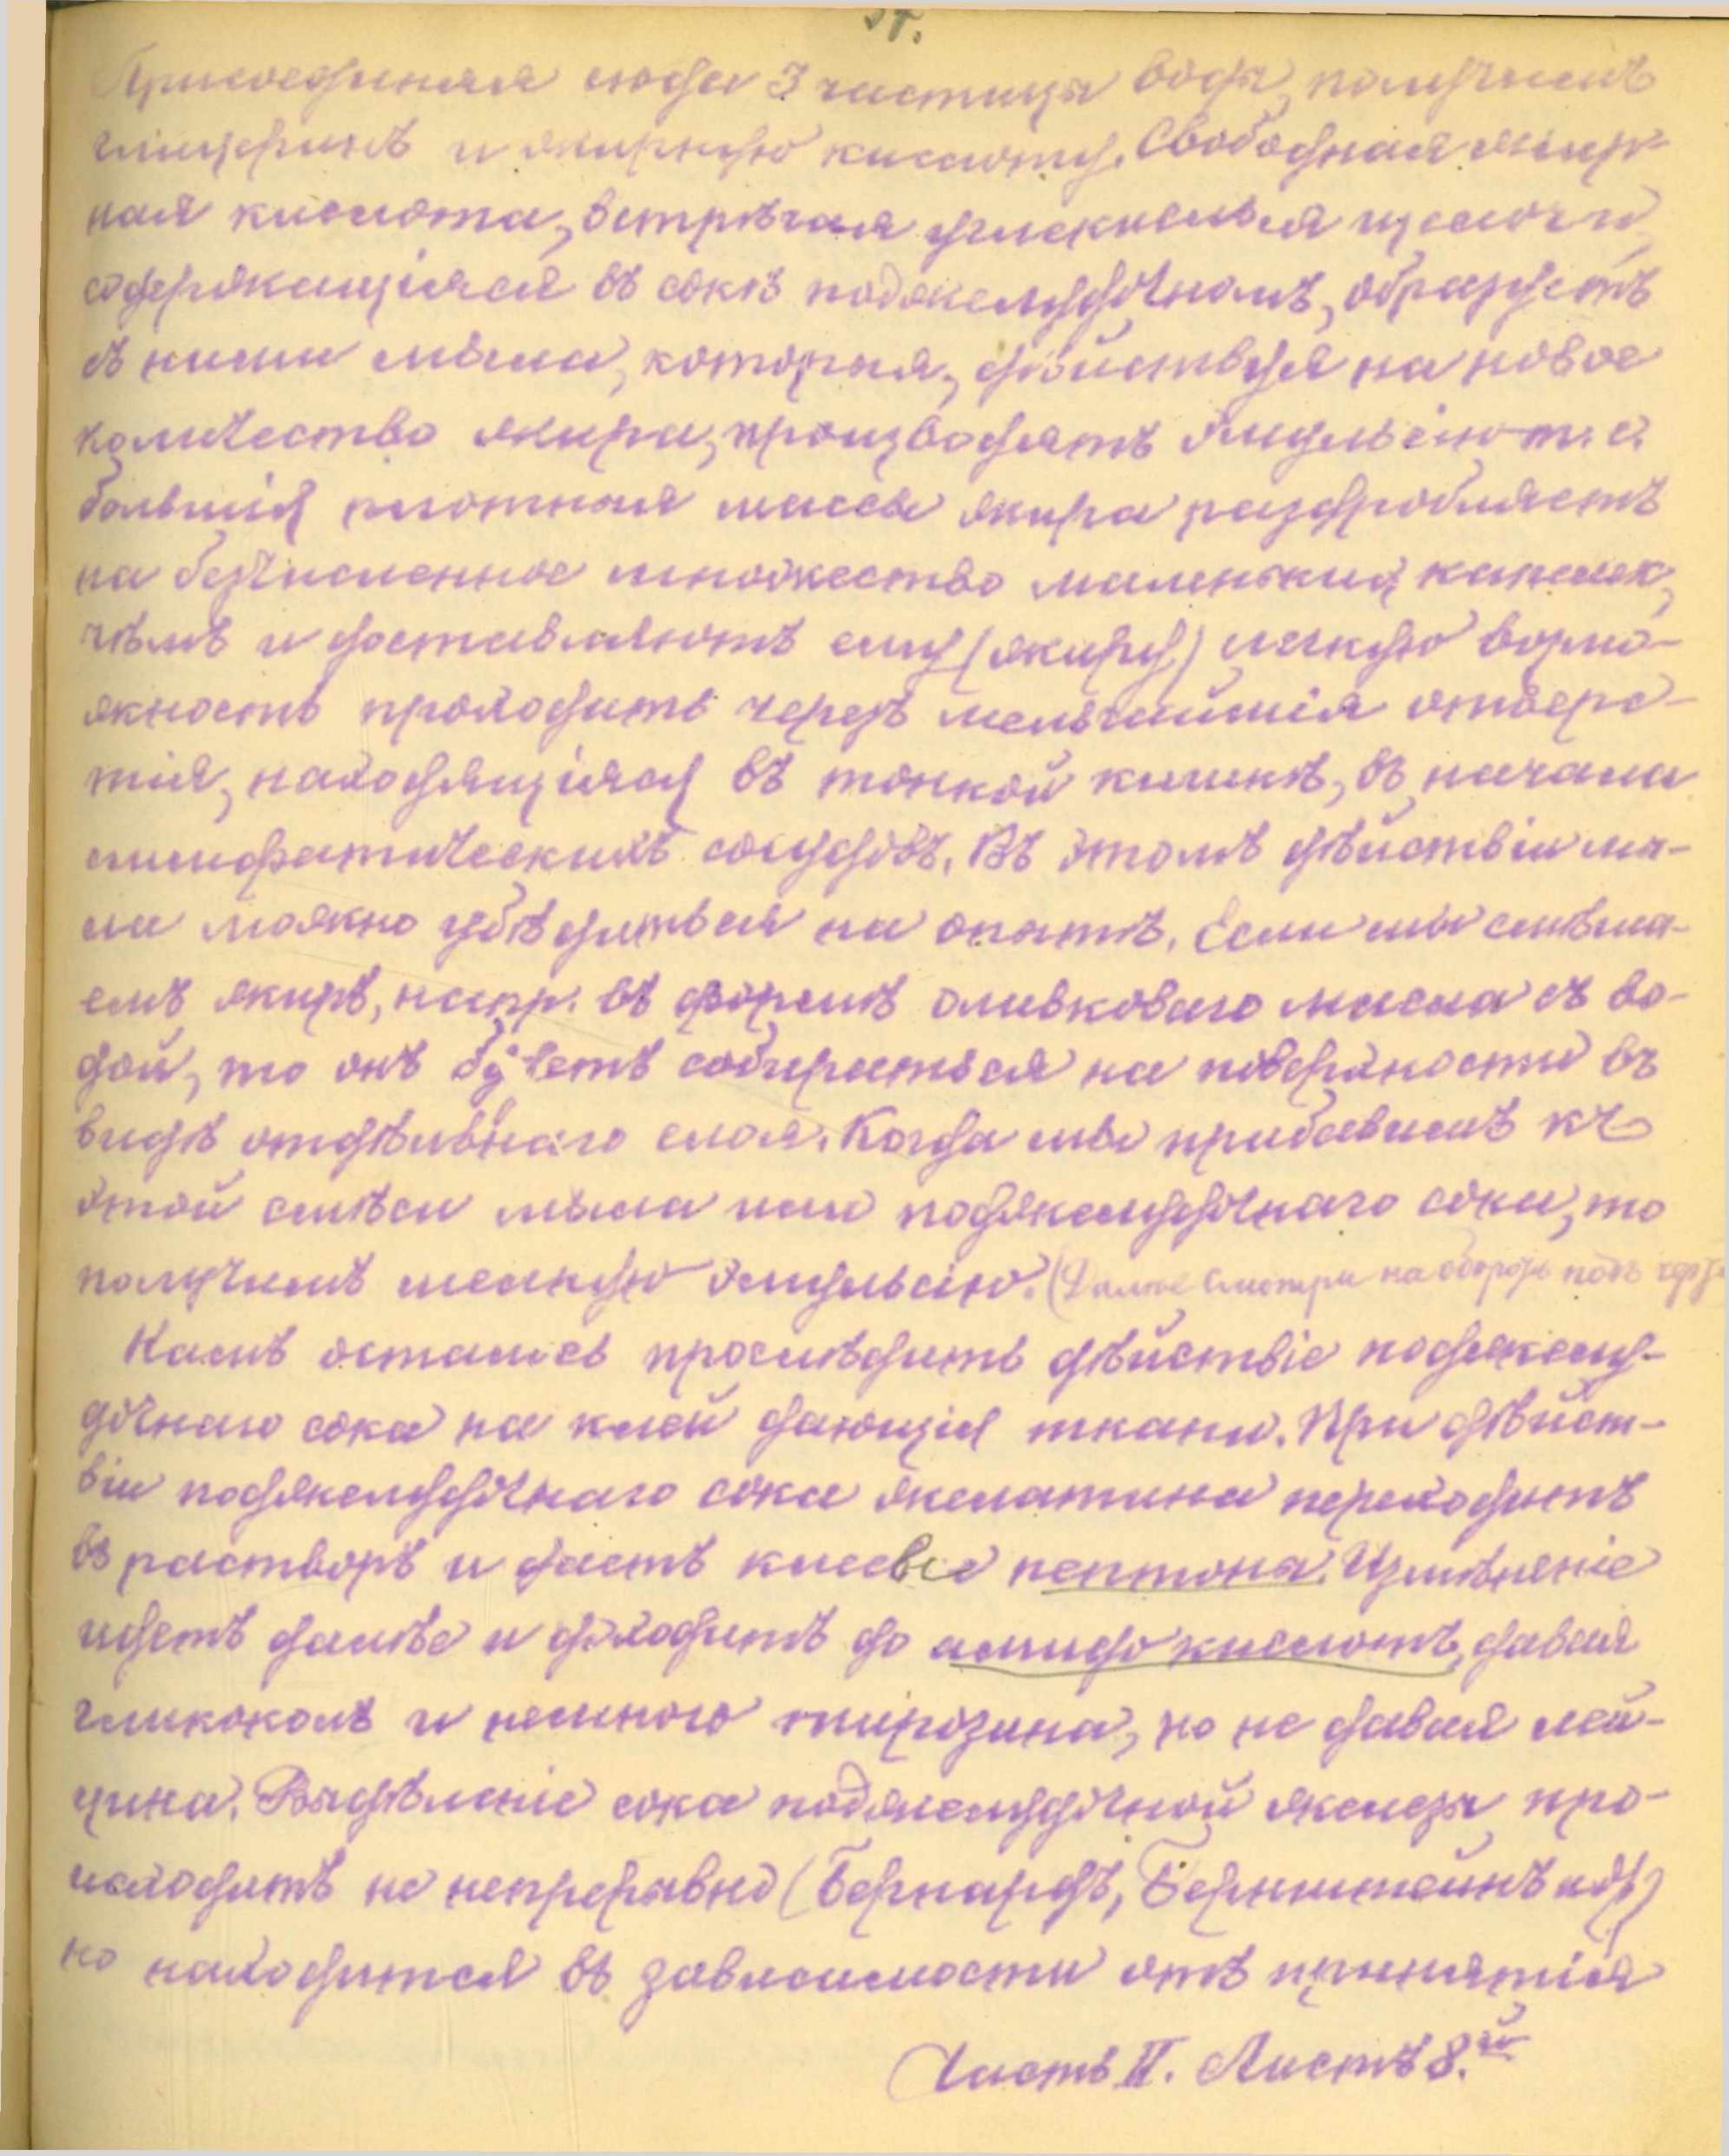 Присоединяя сюда 3 частицы воды, получимъ
глицеринъ и жирную кислоту. Свободная жир-
ная кислота, встрѣчая углекислыя щелочи,
содержащіяся въ сокѣ поджелудочномъ, образуетъ
съ ними мыла, которыя, дѣйствуя на новое
количество жира, производятъ эмульсію т. е.
большія плотныя массы жира раздробляетъ
на безчисленное множество маленькихъ капелек,
чѣмъ и доставляютъ ему (жиру) легкую возмо-
жность проходить черезъ мельчайшія отверс-
тія, находящіяся въ тонкой кишкѣ, въ начала
лимфатическихъ сосудовъ. Въ этомъ дѣйствіи мы-
ла можно убѣдиться на опытѣ. Если мы смѣша-
емъ жиръ, напр. въ формѣ оливковаго масла съ во-
дой, то онъ будетъ собираться на поверхности въ
видѣ отдѣльнаго слоя. Когда мы прибавимъ къ
этой смѣси мыла или поджелудочнаго сока, то
получимъ мелкую эмульсію. (Далѣе смотри на оборотѣ подъ
Намъ осталось прослѣдить дѣйствіе поджелу-
дочнаго сока на клей дающія ткани. При дѣйст-
віи поджелудочнаго сока желатина переходитъ
въ растворъ и даетъ клеевые пептоны. Измѣненіе
идетъ далѣе и доходитъ до амидо кислотъ, давая
гликоколъ и немного тирозина, но не давая лей-
цина. Выдѣленіе сока поджелудочной железы про-
исходитъ не непрерывно (Бернардъ, Бернштейнъ и др)
но находится въ зависимости отъ принятія
Часть II. Листъ 8.ый